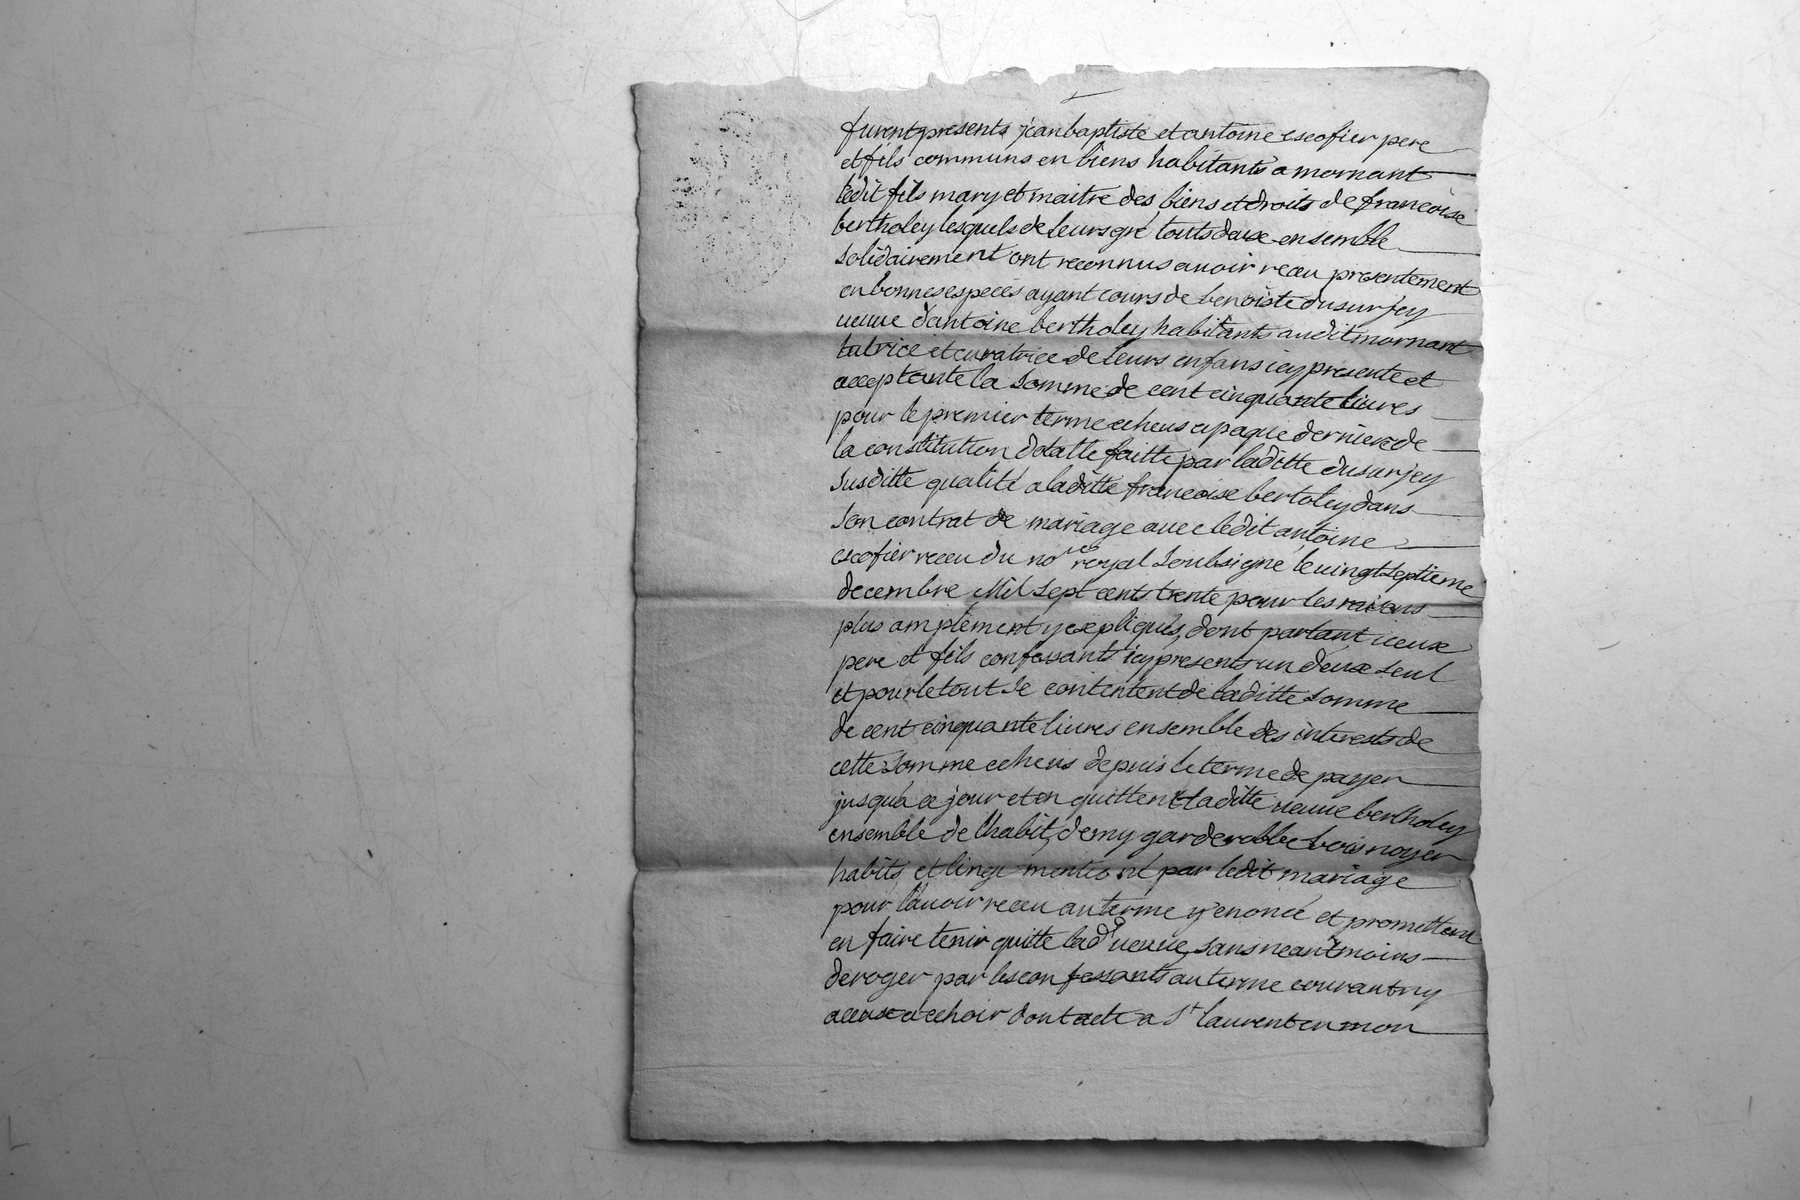 furent presents jean baptiste et antoine escofier pere
et fils communs en biens habitants a mornant
ledit fils mary et maitre des biens et droits de francoise
bertholey lesquels de leurs gré touts deux ensemble
solidairement ont reconnus auoir receu presentement
en bonnes especes ayant cours de benoiste dusurjey
ueuue d'antoine bertholey habitants audit mornant
tutrice et curatrice de leurs enfans icy presente et
acceptante la somme de cent cinquante liures
pour le premier terme echeus a paque dernier de
la constitution dotalle faitte par laditte dusurjey
susditte qualité a laditte francoise bertoley dans
son contrat de mariage auec ledit antoine
escofier receu du no.re royal soubsigné le uingt septieme
decembre Mil sept cents trente pour les raisons
plus amplement y expliqués, dont partant iceux
pere et fils confessants icy presents un deux seul
et pour le tout se contentent de laditte somme
de cent cinquante liures ensemble des interests de
cette somme echeus depuis le terme de payer
jusqu'a ce jour et en quittent laditte ueuue bertholey
ensemble de l'habit, demy garderobbe bois noyer
habits et linge mentioné par ledit mariage
pour l'auoir receu au terme y enoncé et promettent
en faire tenir quitte lad.te ueuue, sans neantmoins
deroger par les confessants au terme courant ny
a ceux a echoir dont acte a S.t laurent en mon